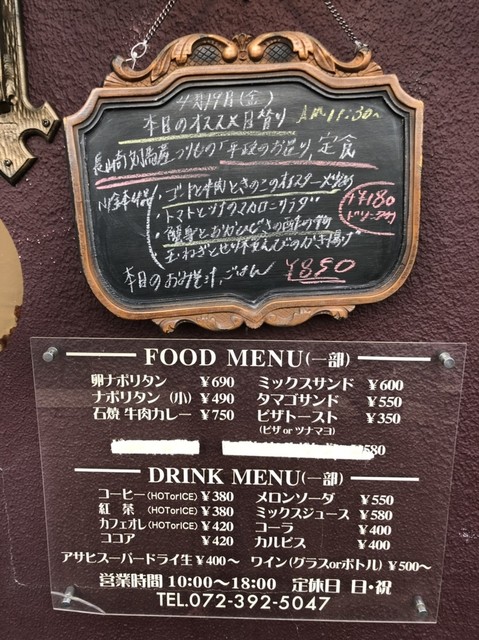 4月19日(金)
本日のオススメ日替り AM.11:30〜
長崎 つりもの「平政のお造り」定食
・ 牛肉ときのこのオイスター炒め
・トマトとツナのマカロニサラダ
・ とおかひじきの酢の物
玉ねぎと のかき揚げ
+¥180
本日のお味噌汁、ごはん ¥850
FOOD MENU(一部)
卵ナポリタン ¥690 ミックスサンド ¥600
ナポリタン (小) ¥490 タマゴサンド ¥550
石焼 牛肉カレー ¥750 ピザトースト ¥350
(ピザ or ツナマヨ)
580
DRINK MENU(一部)
コーヒー(HOTorICE) ¥380 メロンソーダ ¥550
紅 茶 (HOTorICE) ¥380 ミックスジュース ¥580
カフェオレ(HOTorICE) ¥420 コーラ ¥400
ココア ¥420 カルピス ¥400
アサヒスーパードライ生 ¥400〜 ワイン(グラスorボトル) ¥500〜
営業時間 10:00〜18:00 定休日 日・祝
TEL.072-392-5047